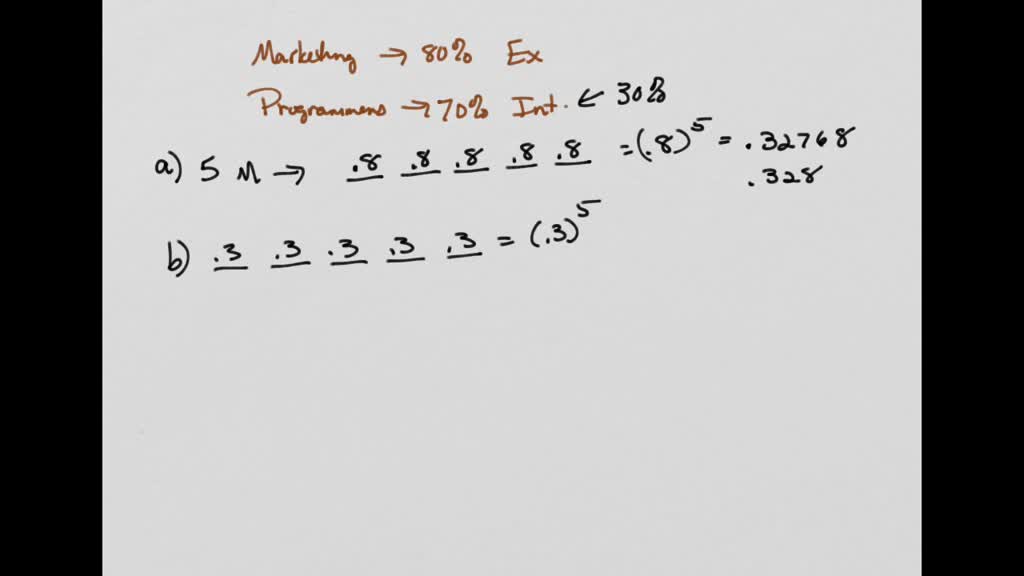 Marketing → 80% Ex
Programmers → 70% Int. ← 30%
a) 5 M → .8 .8 .8 .8 .8 = (.8)^5 = .32768
.328
b) .3 .3 .3 .3 .3 = (.3)^5